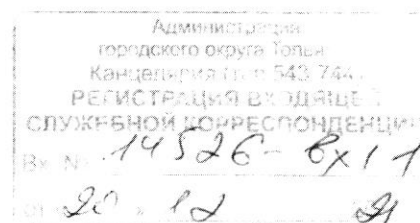 Администрация
городского округа Тольятти
Канцелярия тел. 543 744
РЕГИСТРАЦИЯ ВХОДЯЩЕЙ
СЛУЖЕБНОЙ КОРРЕСПОНДЕНЦИИ
Вх. № 14526-вх/1
от 20 12 21